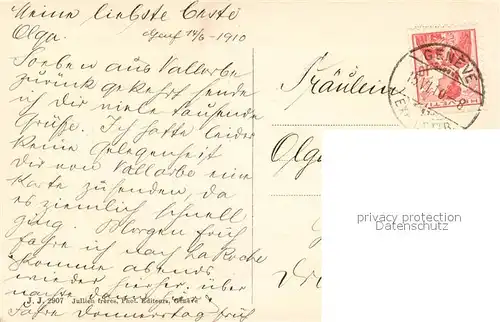 Meine liebste beste
Olga.
Genf 14/6 - 1910
Soeben aus Vallorbe
zurück gekehrt sende
ich Dir viele tausende
Grüße. Ich hatte leider
keine Gelegenheit
Dir von Vallorbe eine
Karte zusenden, da
es ziemlich schnell
ging. Morgen früh
fahre ich nach La Roche
komme abends
wieder hierher. über
nachte
fahre Donnerstag früh
J. J. 2907 Jullien frères, Phot. Editeurs, Genève
GENEVE
Fräulein
Olga
privacy protection
Datenschutz